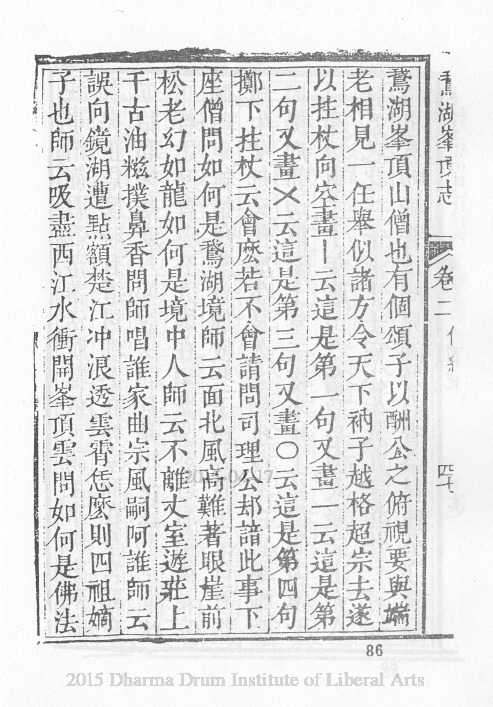 鵞湖峯頂志 卷二 四七
鵞湖峯頂山僧也有個頌子以酬公之俯視要與端
老相見一任舉似諸方令天下衲子越格超宗去遂
以拄杖向空畫｜云這是第一句又畫一云這是第
二句又畫×云這是第三句又畫○云這是第四句
擲下拄杖云會麽若不會請問司理公却諳此事下
座僧問如何是鵞湖境師云面北風高難著眼崖前
松老幻如龍如何是境中人師云不離丈室遊莊上
千古油糍撲鼻香問師唱誰家曲宗風嗣阿誰師云
誤向鏡湖遭點額楚江冲浪透雲霄恁麽則四祖嫡
子也師云吸盡西江水衝開峯頂雲問如何是佛法
86
2015 Dharma Drum Institute of Liberal Arts